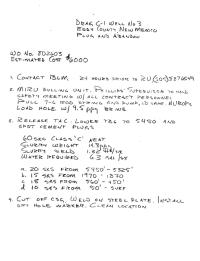 DERG G-1 WELL No 3
EDDY COUNTY NEW MEXICO
PLUG AND ABANDON
W.O. No.
ESTIMATED COST $6000
1. CONTACT BLM 24 HOURS PRIOR TO
2. MIRU PULLING UNIT. PHILLIPS SUPERVISOR TO HOLD
SAFETY MEETING W/ ALL CONTRACT PERSONNEL.
PULL
LOAD HOLE W/ 9.5 PPG BRINE
3. RELEASE TAC. LOWER TBG TO 5450 AND
SPOT CEMENT PLUGS
60 SXS CLASS "C" NEAT
SLURRY WEIGHT
SLURRY YIELD 1.32
WATER REQUIRED 6.3
a. 20 SXS FROM 5450'-5325'
b. 15 SXS FROM
c. 15 SXS FROM
d. 10 SXS FROM 50'-SURF
4. CUT OFF CSG, WELD ON STEEL PLATE. INSTALL
DRY HOLE MARKER. CLEAN LOCATION